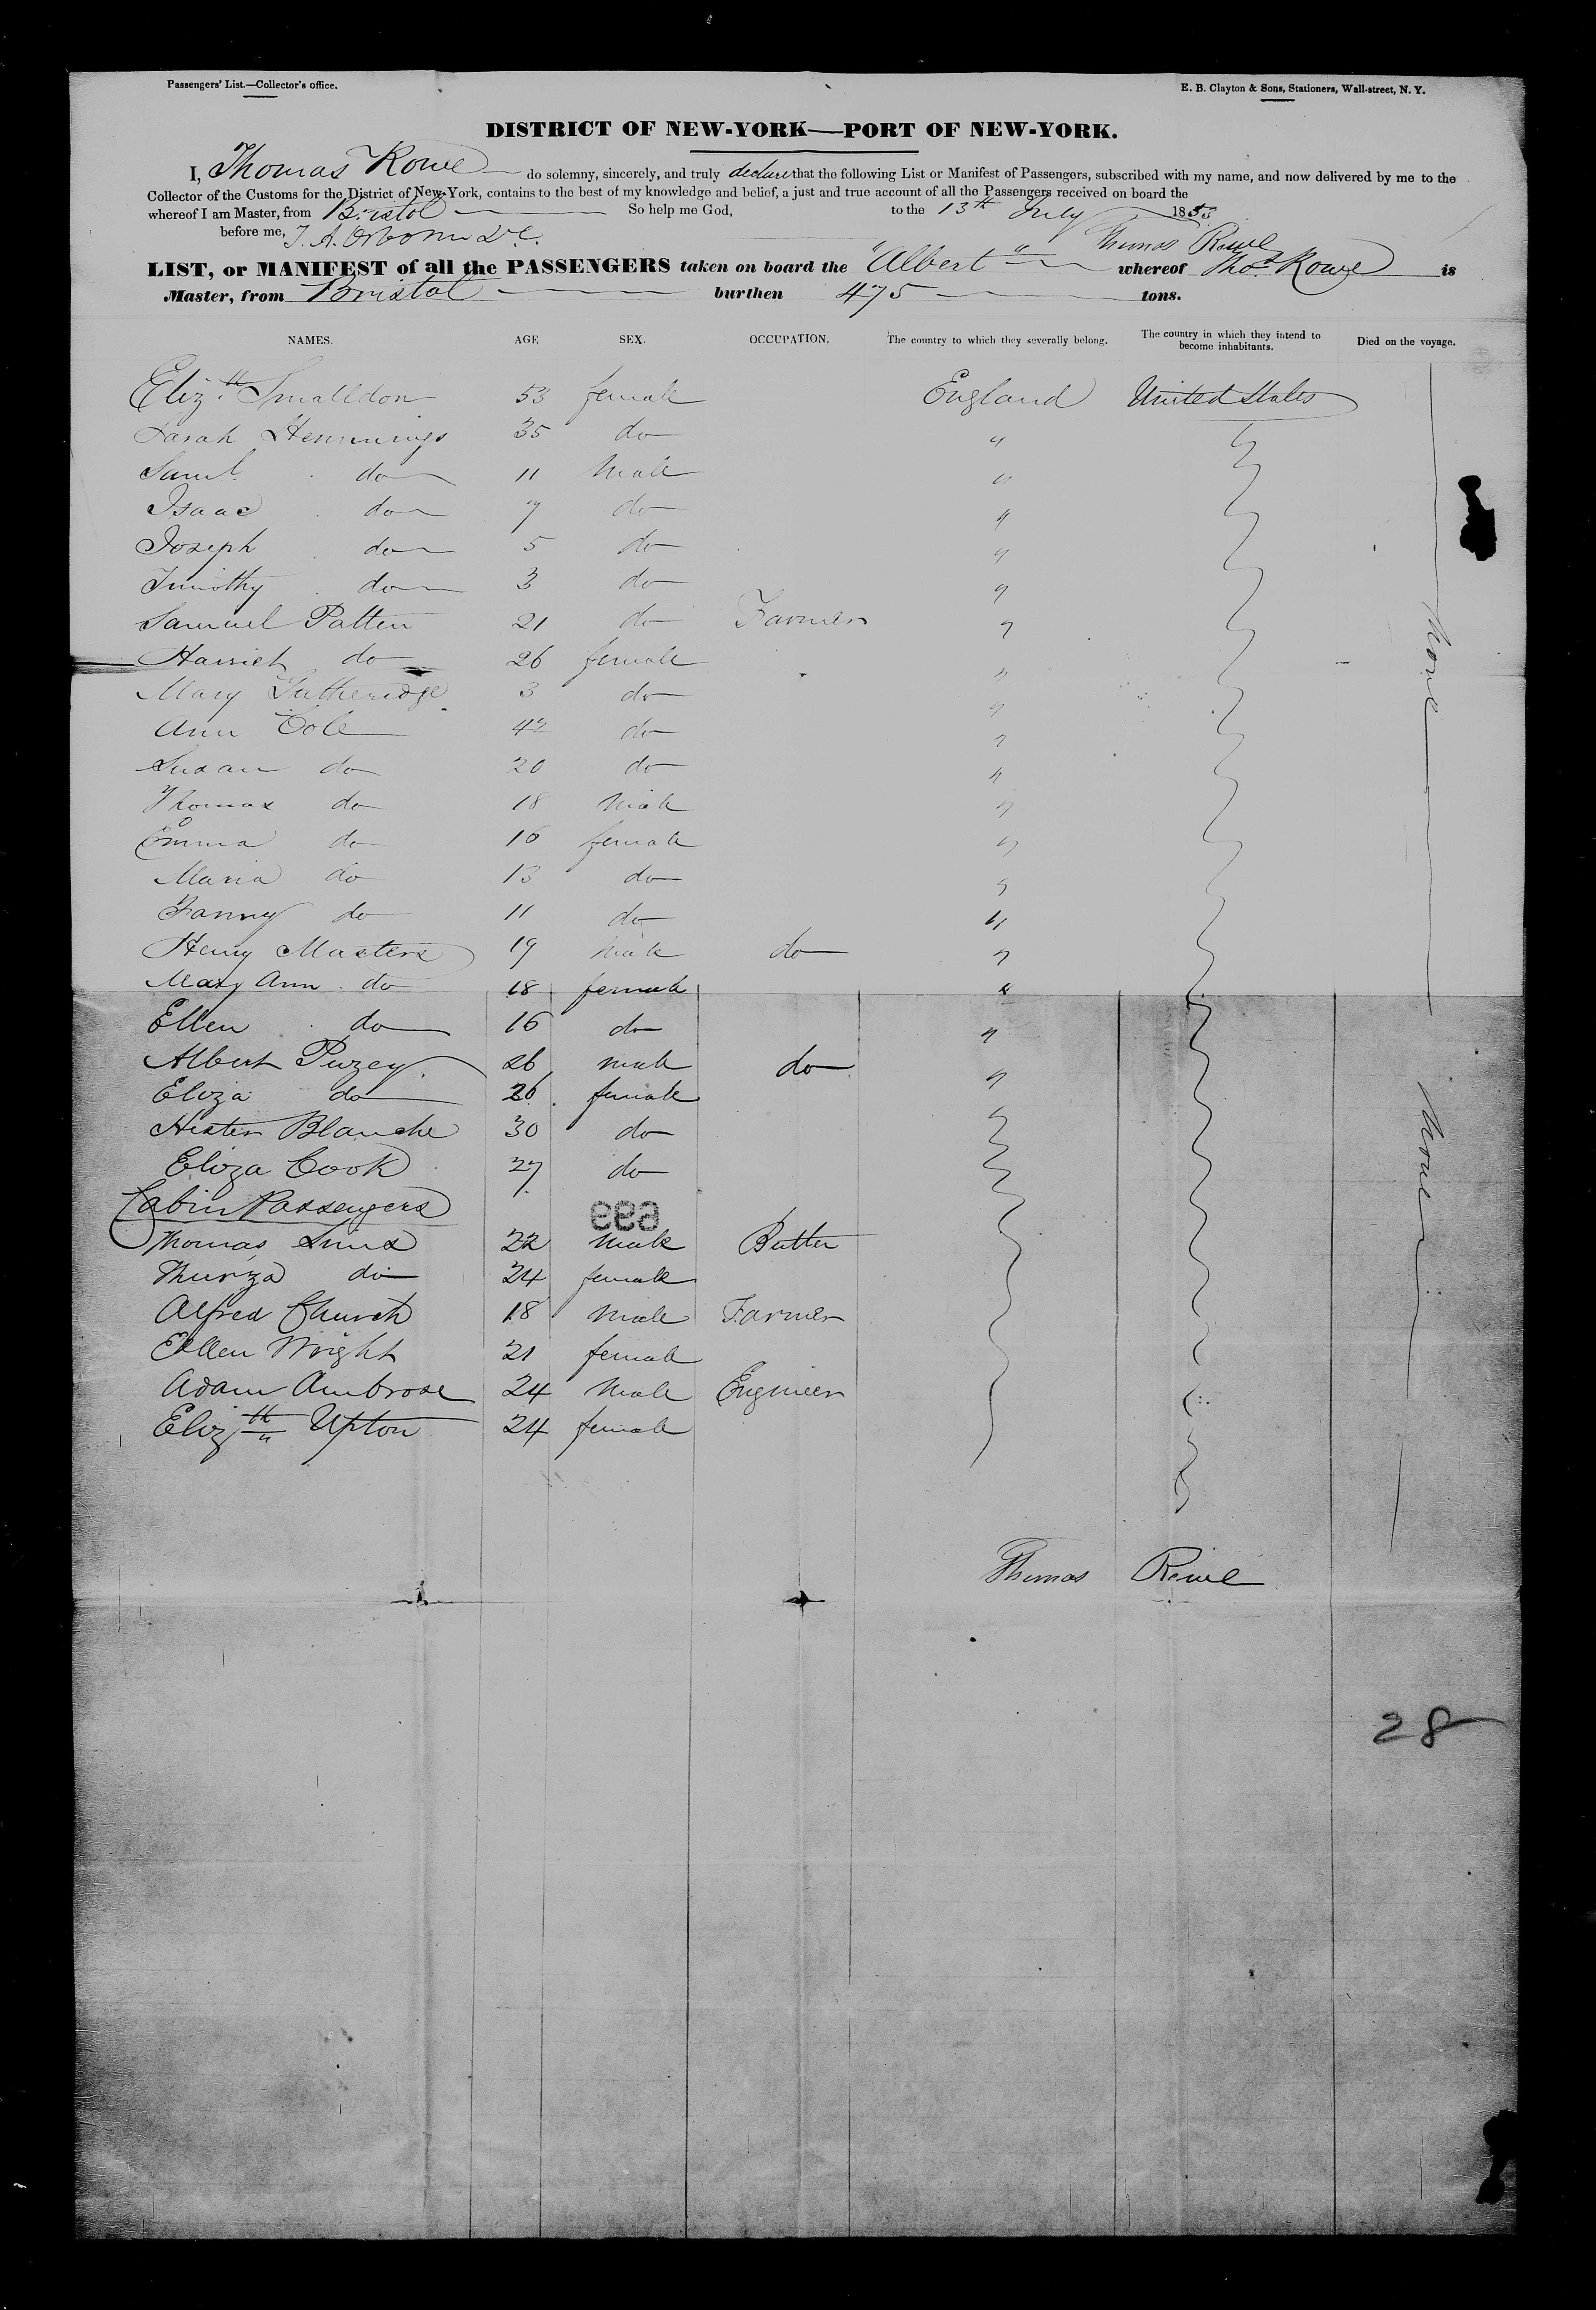 Passengers' List.—Collector's office. E. B. Clayton & Sons, Stationers, Wall-street, N. Y.
DISTRICT OF NEW-YORK—PORT OF NEW-YORK.
I, Thomas Rowe do solemny, sincerely, and truly declare that the following List or Manifest of Passengers, subscribed with my name, and now delivered by me to the
Collector of the Customs for the District of New-York, contains to the best of my knowledge and belief, a just and true account of all the Passengers received on board the
whereof I am Master, from Bristol So help me God, to the 13th July 1853
before me, Thomas Rowe
LIST, or MANIFEST of all the PASSENGERS taken on board the "Albert" whereof Thos Rowe is
Master, from Bristol burthen 475 tons.
NAMES. AGE SEX. OCCUPATION. The country to which they severally belong. The country in which they intend to become inhabitants. Died on the voyage.
Elizth Smalldon 53 female England United States
Sarah Hennings 35 do "
Saml. do 11 Male "
Isaac do 7 do "
Joseph do 5 do "
Timothy do 3 do "
Samuel Patten 21 do Farmer "
Harriet do 26 female " None
Mary 3 do "
Ann Cole 42 do "
Susan do 20 do "
Thomas do 18 Male "
Emma do 16 female "
Maria do 13 do "
Fanny do 11 do "
Henry Masters 19 Male do "
Mary Ann do 18 female "
Ellen do 16 do "
Albert Puzey 26 male do "
Eliza do 26 female
Hester Blanche 30 do None
Eliza Cook 27 do
Cabin Passengers
699
Thomas 22 Male
Thurza do 24 female
Alfred Church 18 Male Farmer
Ellen Wright 21 female
Adam Ambrose 24 Male Engineer
Elizth Upton 24 female
Thomas Rowe
28